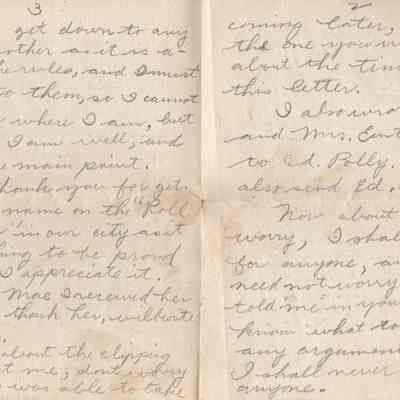 3
get down to any
other as it is a-
e rules, and I must
to them, so I cannot
where I am, but
I am well, and
e main point.
hank you for get-
name on the "Roll
" in our city as it
hing to be proud
I appreciate it.
Mae I received her
thank her, will write
about the clipping
t me; don't worry
was able to take
2
coming later,
the one you w
about the tim
this letter.
I also wro
and Mrs.
to Ed. Polly.
also send Ed.
Now about
worry, I shal
for anyone, a
need not worry
told me in your
know what to
any argumen
I shall never
anyone.